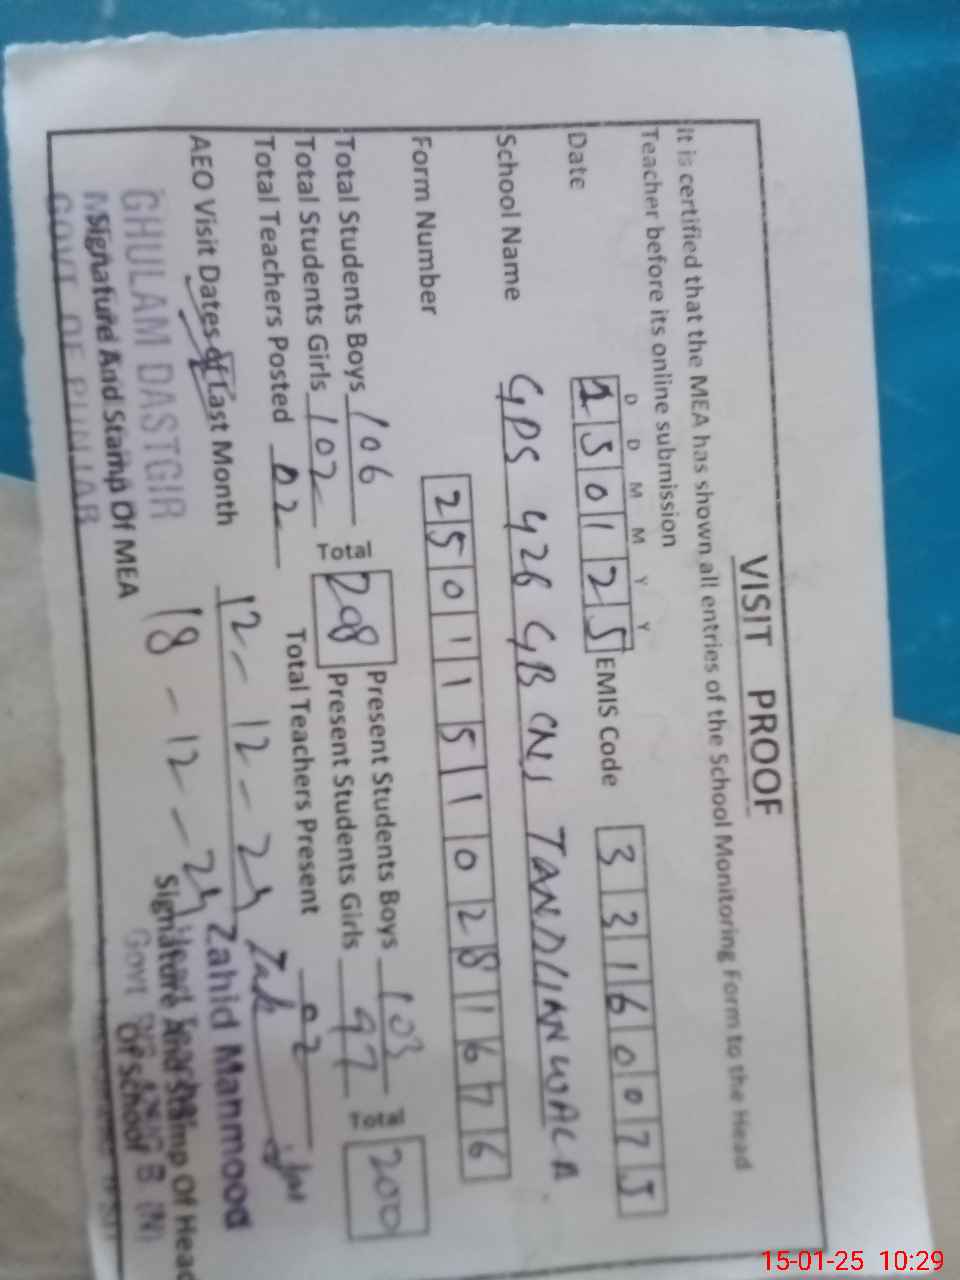 VISIT PROOF
It is certified that the MEA has shown all entries of the School Monitoring Form to the Head
Teacher before its online submission
D D M M Y Y
Date 150125 EMIS Code 33160075
School Name GPS 426 GB CNJ TANDLIANWALA
Form Number 25011510281676
Total Students Boys 106 Total 208 Present Students Boys 103 Total 200
Total Students Girls 102 Present Students Girls 97
Total Teachers Posted 02 Total Teachers Present 02
AEO Visit Dates of Last Month 12-12-24
18-12-24
GHULAM DASTGIR
Zahid Mahmood
Signature And Stamp Of MEA
Signature And Stamp Of Head
Of School
GOVT OF PUNJAB
15-01-25 10:29